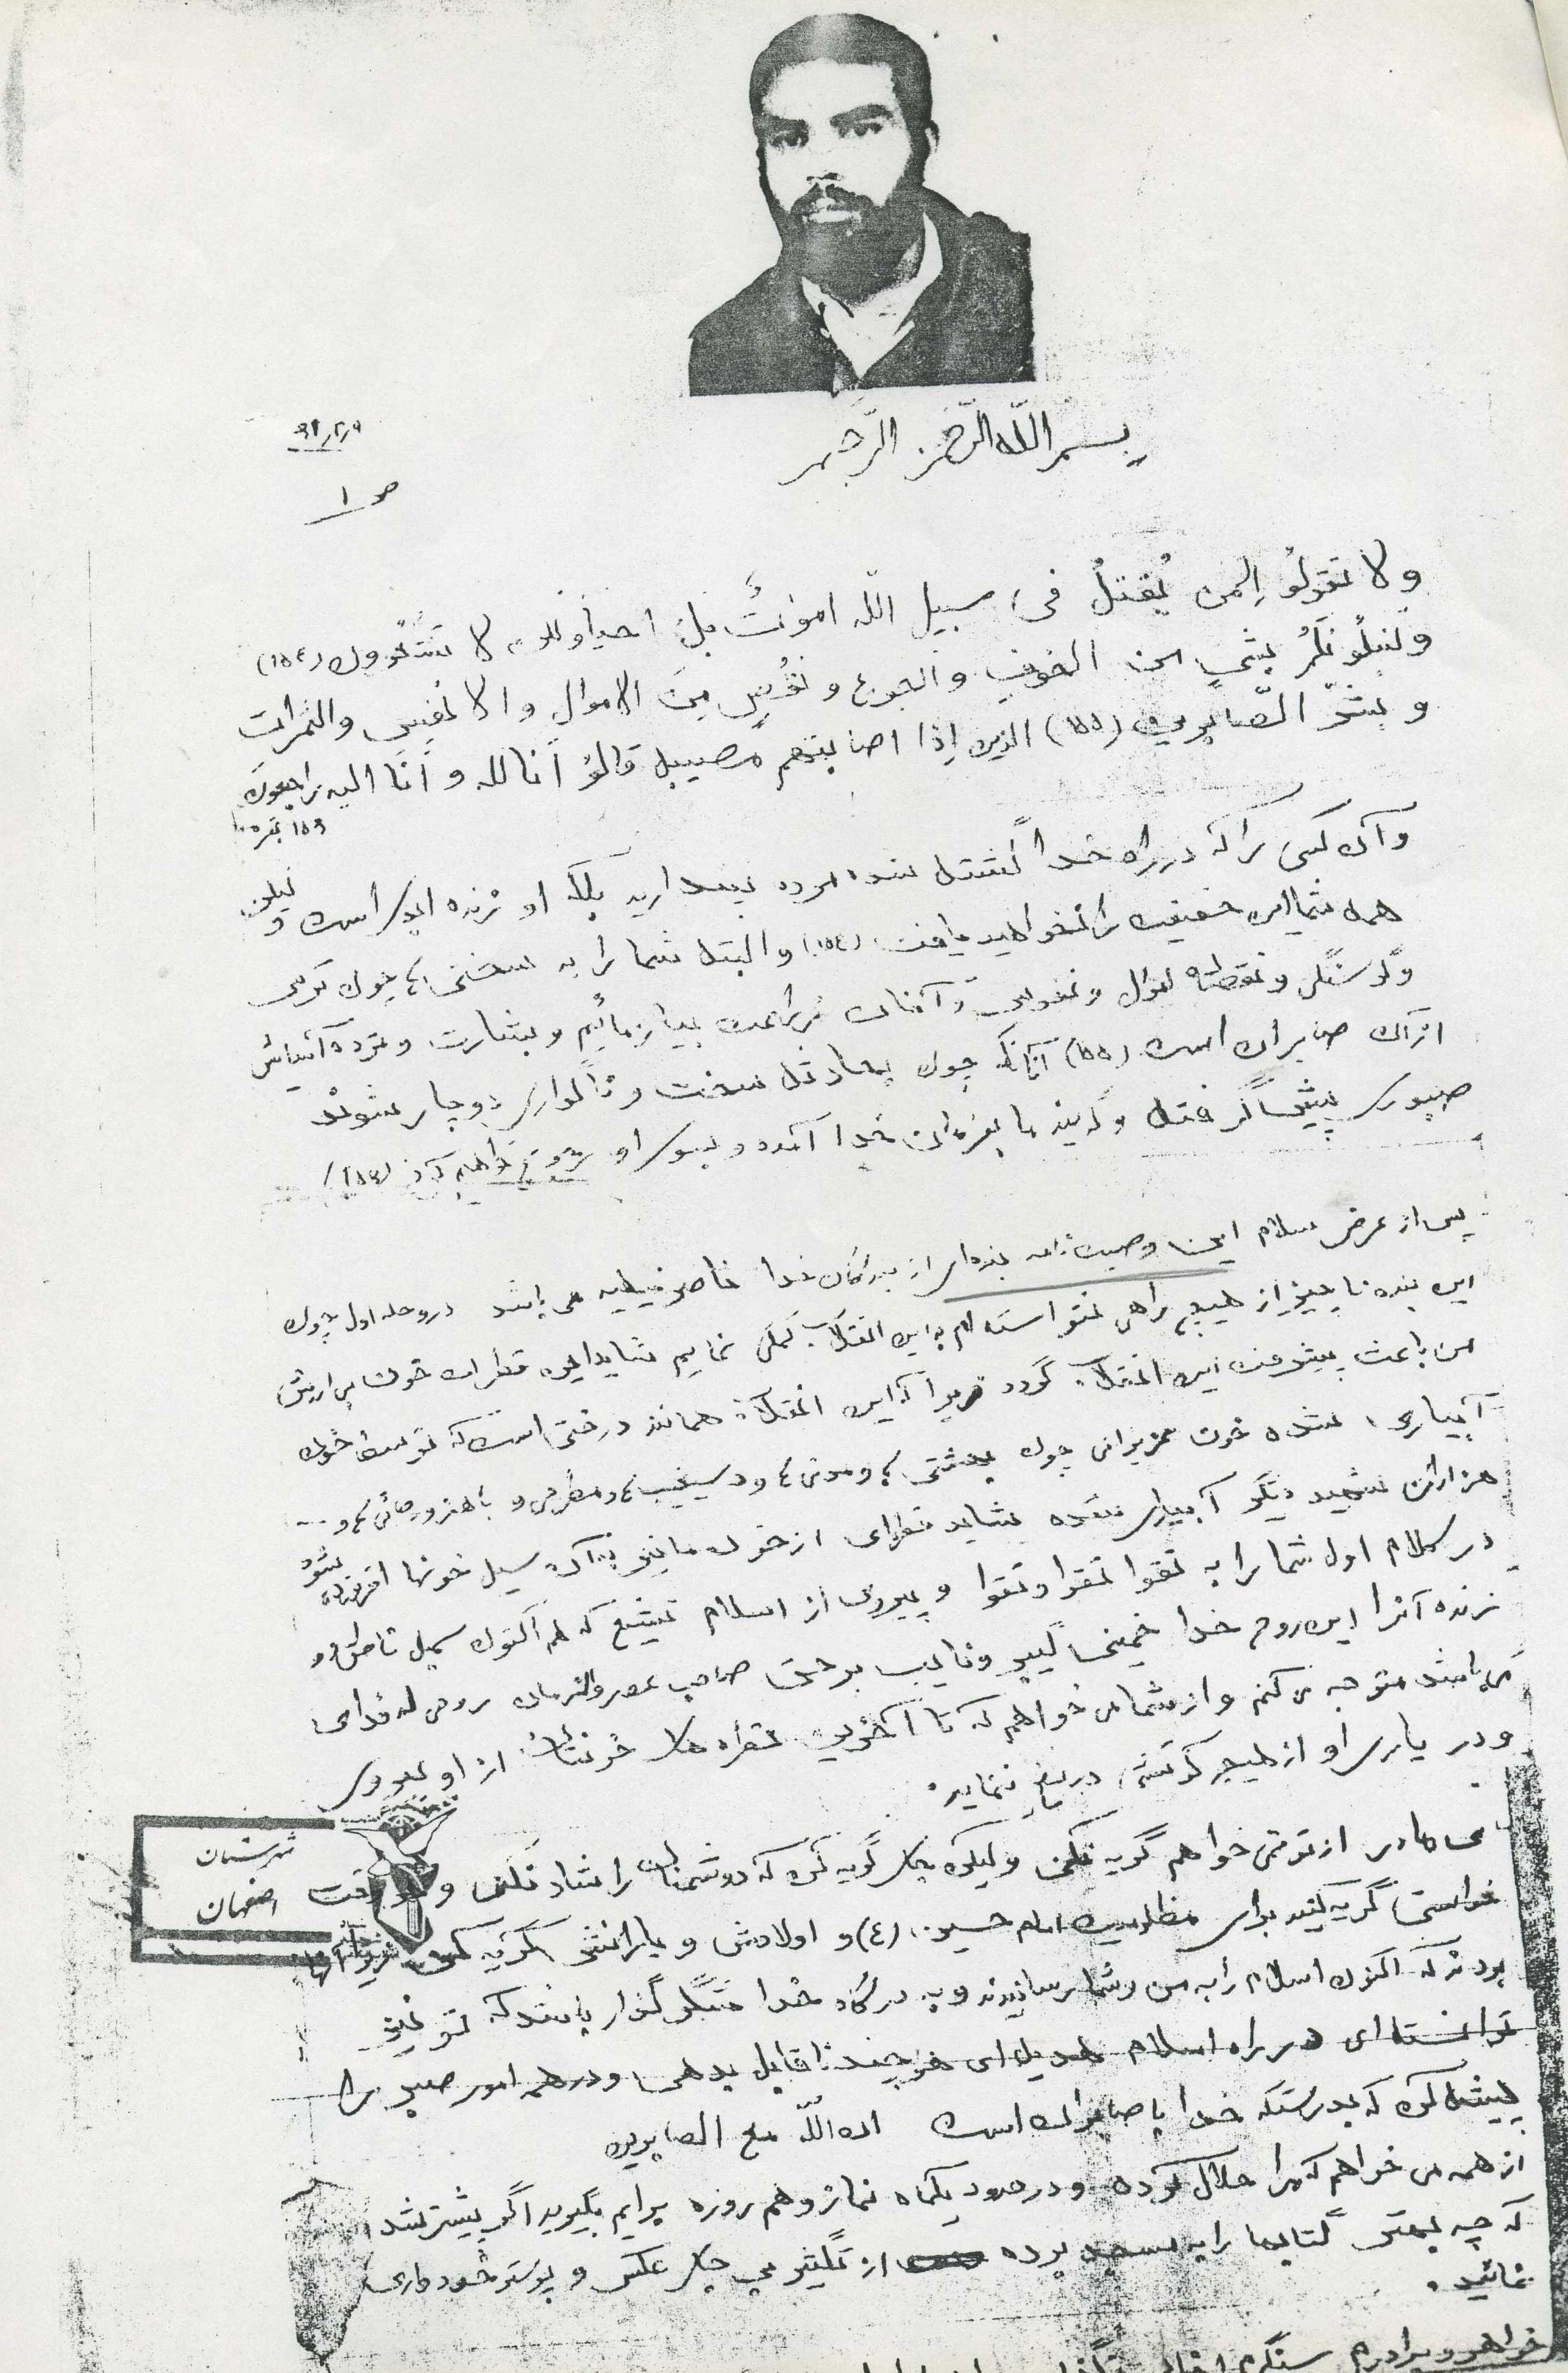 بسم الله الرحمن الرحیم
ص ۱
ولا تقولوُ لِمن یُقتلُ فی سبیل الله امواتٌ بل احیاءٌ ولکن لا تشعرون (۱۵۴)
ولنبلُونَکُم بشیٍ من الخوفِ والجوع و نقُصٍ مِنَ الاموالِ والانفسِ والثمرات
و بشّر الصّابرین (۱۵۵) الذین اِذا اصابتهم مصیبه قالوُ اَنا لله و اَنا الیه راجعون
۱۵۶ بقره
و آن کسی را که در راه خدا کشته شده مرده نپندارید بلکه او زنده ابدی است و لیکن
همه شما این حقیقت را نخواهید یافت (۱۵۴) و البته شما را به سختی ها چون ترس
و گرسنگی و نقصان اموال و نفوس و آفات زراعت بیازمائیم و بشارت و مژده آسایش
از آن صابران است (۱۵۵) آنانکه چون بحادثه سخت و ناگواری دوچار شوند
صبوری پیشه گرفته و گویند ما بفرمان خدا آمده و بسوی او رجوع خواهیم کرد (۱۵۶)
پس از عرض سلام این وصیت نامه بنده ای از بندگان خدا می باشد در وحله اول چون
این بنده ناچیز از هیچ راهی نتوانسته ام به این انقلاب کمکی نمایم شاید این قطرات خون
من باعث پیشرفت این انقلاب گردد زیرا که این انقلاب همانند درختی است که توسط خون
آبیاری شده خون عزیزانی چون بهشتی ها و مدنی ها و دستغیب ها و مطهری و باهنر و رجائی ها و ...
هزاران شهید دیگر آبیاری شده شاید قطره ای از خون ما نیز به آن سیل خونها افزوده شود
در کلام اول شما را به تقوا تقوا و تقوا و پیروی از اسلام تشیع که هم اکنون
زنده آنرا این روح خدا خمینی کبیر و نایب برحق صاحب عصر والزمان روحی له فدا می
می باشد متوجه می کنم و از شما می خواهم که تا آخرین قطره های خونتان از او
و در یاری او از هیچ کوششی دریغ ننمایید.
مادر از تو می خواهم گریه نکنی ولیکن بجای گریه کن که دوشمنان را شاد نکنی و هر وقت
خواستی گریه کنید برای مظلومیت امام حسین (ع) و اولادش و یارانش گریه کن زیرا آنها
بودند که اکنون اسلام را به من و شما رسانیدند و به درگاه خدا شکر گذار باشند که تو نیز
توانسته ای در راه اسلام هدیه ای هر چند ناقابل بدهی و در همه امور صبر را
پیشه کن که بدرستکه خدا با صابران است ان الله مع الصابرین
از همه می خواهم که مرا حلال کرده و در حدود یکماه نماز و هم روزه برایم بگیرید اگر بیشتر شد
که چه بهتر کتابها را به مسجد برده از تکثیر بی جای عکس و پوستر خودداری
نمائید.
خواهر و برادرم
شهرستان
اصفهان